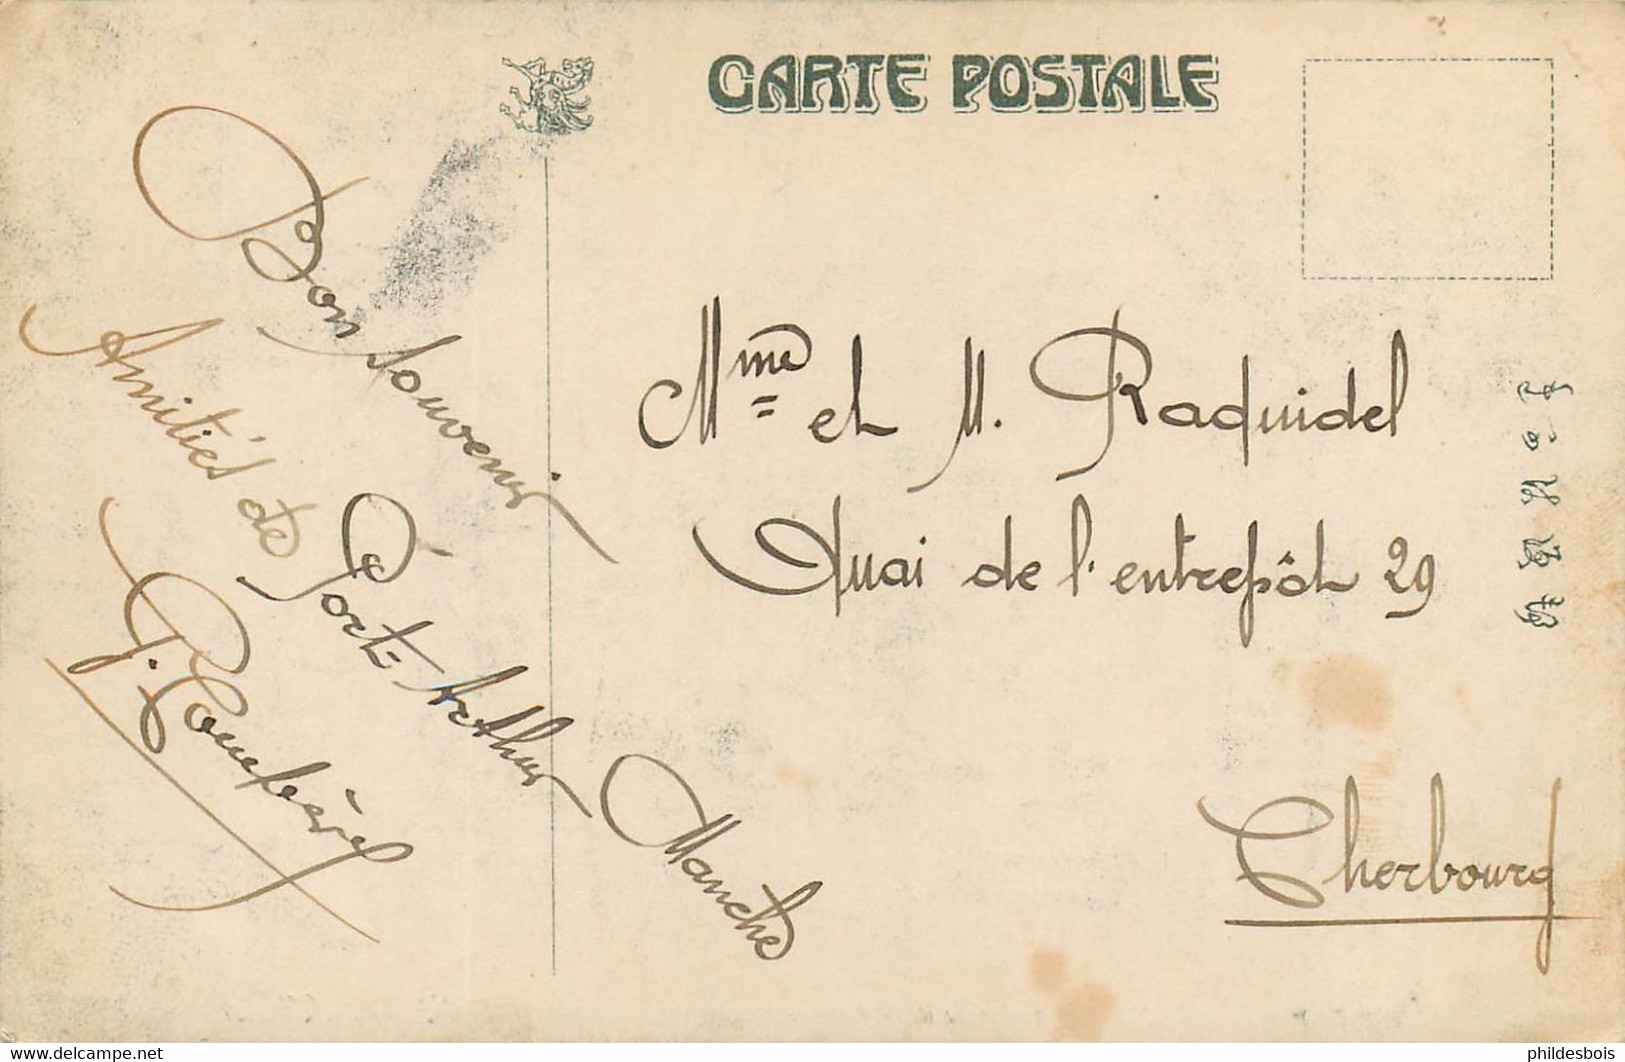 CARTE POSTALE
Bon souvenir
Amitiés de
Port-Arthur
Mme et M. Raquidel
Quai de l'entrepôt 29
Manche
Cherbourg
www.delcampe.net
phildesbois